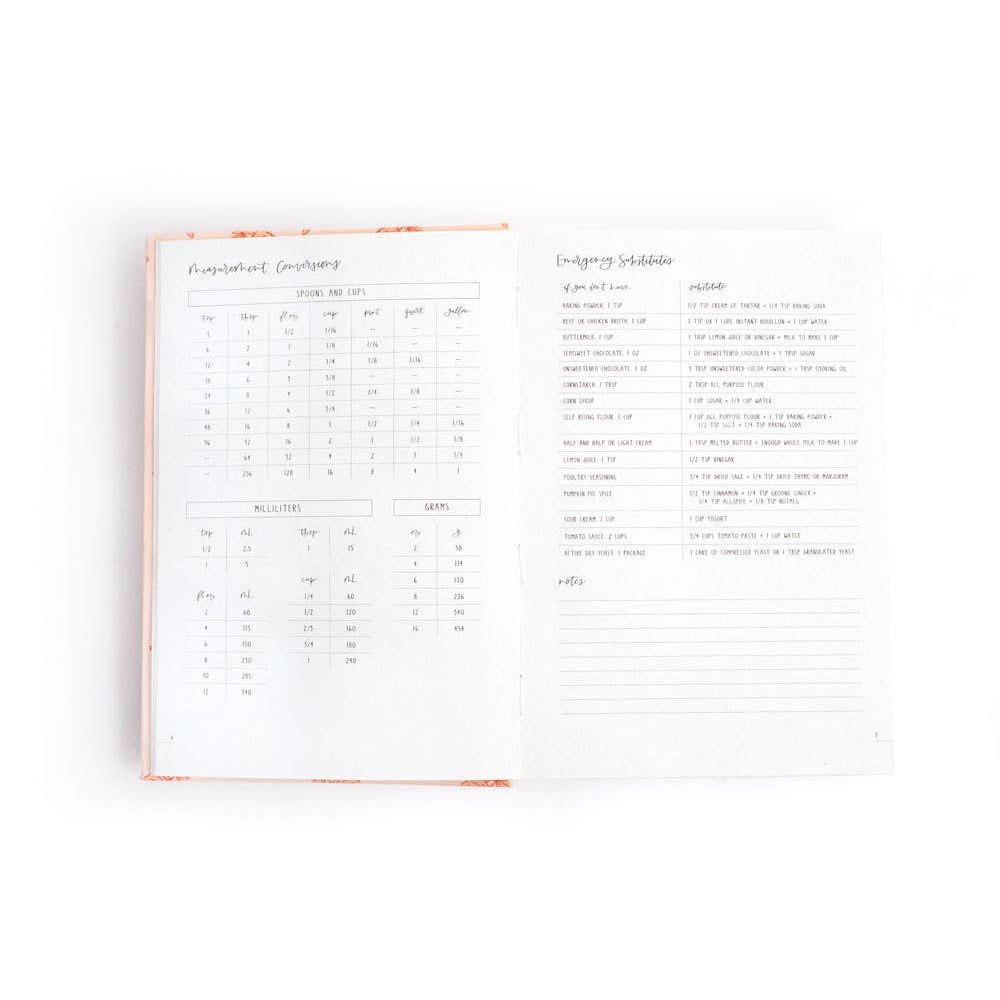 Measurement Conversions
SPOONS AND CUPS
tsp tbsp fl oz cup pint quart gallon
3 1 1/2 1/16 — — —
6 2 1 1/8 1/16 — —
12 4 2 1/4 1/8 1/16 —
18 6 3 3/8 — — —
24 8 4 1/2 1/4 1/8 —
36 12 6 3/4 — — —
48 16 8 1 1/2 1/4 1/16
96 32 16 2 1 1/2 1/8
— 64 32 4 2 1 1/4
— 256 128 16 8 4 1
MILLILITERS
tsp mL
1/2 2.5
1 5
fl oz mL
2 60
4 115
6 150
8 230
10 285
12 340
tbsp mL
1 15
cup mL
1/4 60
1/2 120
2/3 160
3/4 180
1 240
GRAMS
oz g
2 58
4 114
6 170
8 226
12 340
16 454
Emergency Substitutes
if you don't have substitute
BAKING POWDER, 1 TSP 1/2 TSP CREAM OF TARTAR + 1/4 TSP BAKING SODA
BEEF OR CHICKEN BROTH, 1 CUP 1 TSP OR 1 CUBE INSTANT BOUILLON + 1 CUP WATER
BUTTERMILK, 1 CUP 1 TBSP LEMON JUICE OR VINEGAR + MILK TO MAKE 1 CUP
SEMISWEET CHOCOLATE, 1 OZ 1 OZ UNSWEETENED CHOCOLATE + 1 TBSP SUGAR
UNSWEETENED CHOCOLATE, 1 OZ 3 TBSP UNSWEETENED COCOA POWDER + 1 TBSP COOKING OIL
CORNSTARCH, 1 TBSP 2 TBSP ALL PURPOSE FLOUR
CORN SYRUP 1 CUP SUGAR + 1/4 CUP WATER
SELF RISING FLOUR, 1 CUP 1 CUP ALL PURPOSE FLOUR + 1 TSP BAKING POWDER +
1/2 TSP SALT + 1/4 TSP BAKING SODA
HALF AND HALF OR LIGHT CREAM 1 TBSP MELTED BUTTER + ENOUGH WHOLE MILK TO MAKE 1 CUP
LEMON JUICE, 1 TSP 1/2 TSP VINEGAR
POULTRY SEASONING 3/4 TSP DRIED SAGE + 1/4 TSP DRIED THYME OR MARJORAM
PUMPKIN PIE SPICE 1/2 TSP CINNAMON + 1/4 TSP GROUND GINGER +
1/4 TSP ALLSPICE + 1/8 TSP NUTMEG
SOUR CREAM, 1 CUP 1 CUP YOGURT
TOMATO SAUCE, 2 CUPS 3/4 CUPS TOMATO PASTE + 1 CUP WATER
ACTIVE DRY YEAST, 1 PACKAGE 1 CAKE OF COMPRESSED YEAST OR 1 TBSP GRANULATED YEAST
notes
7